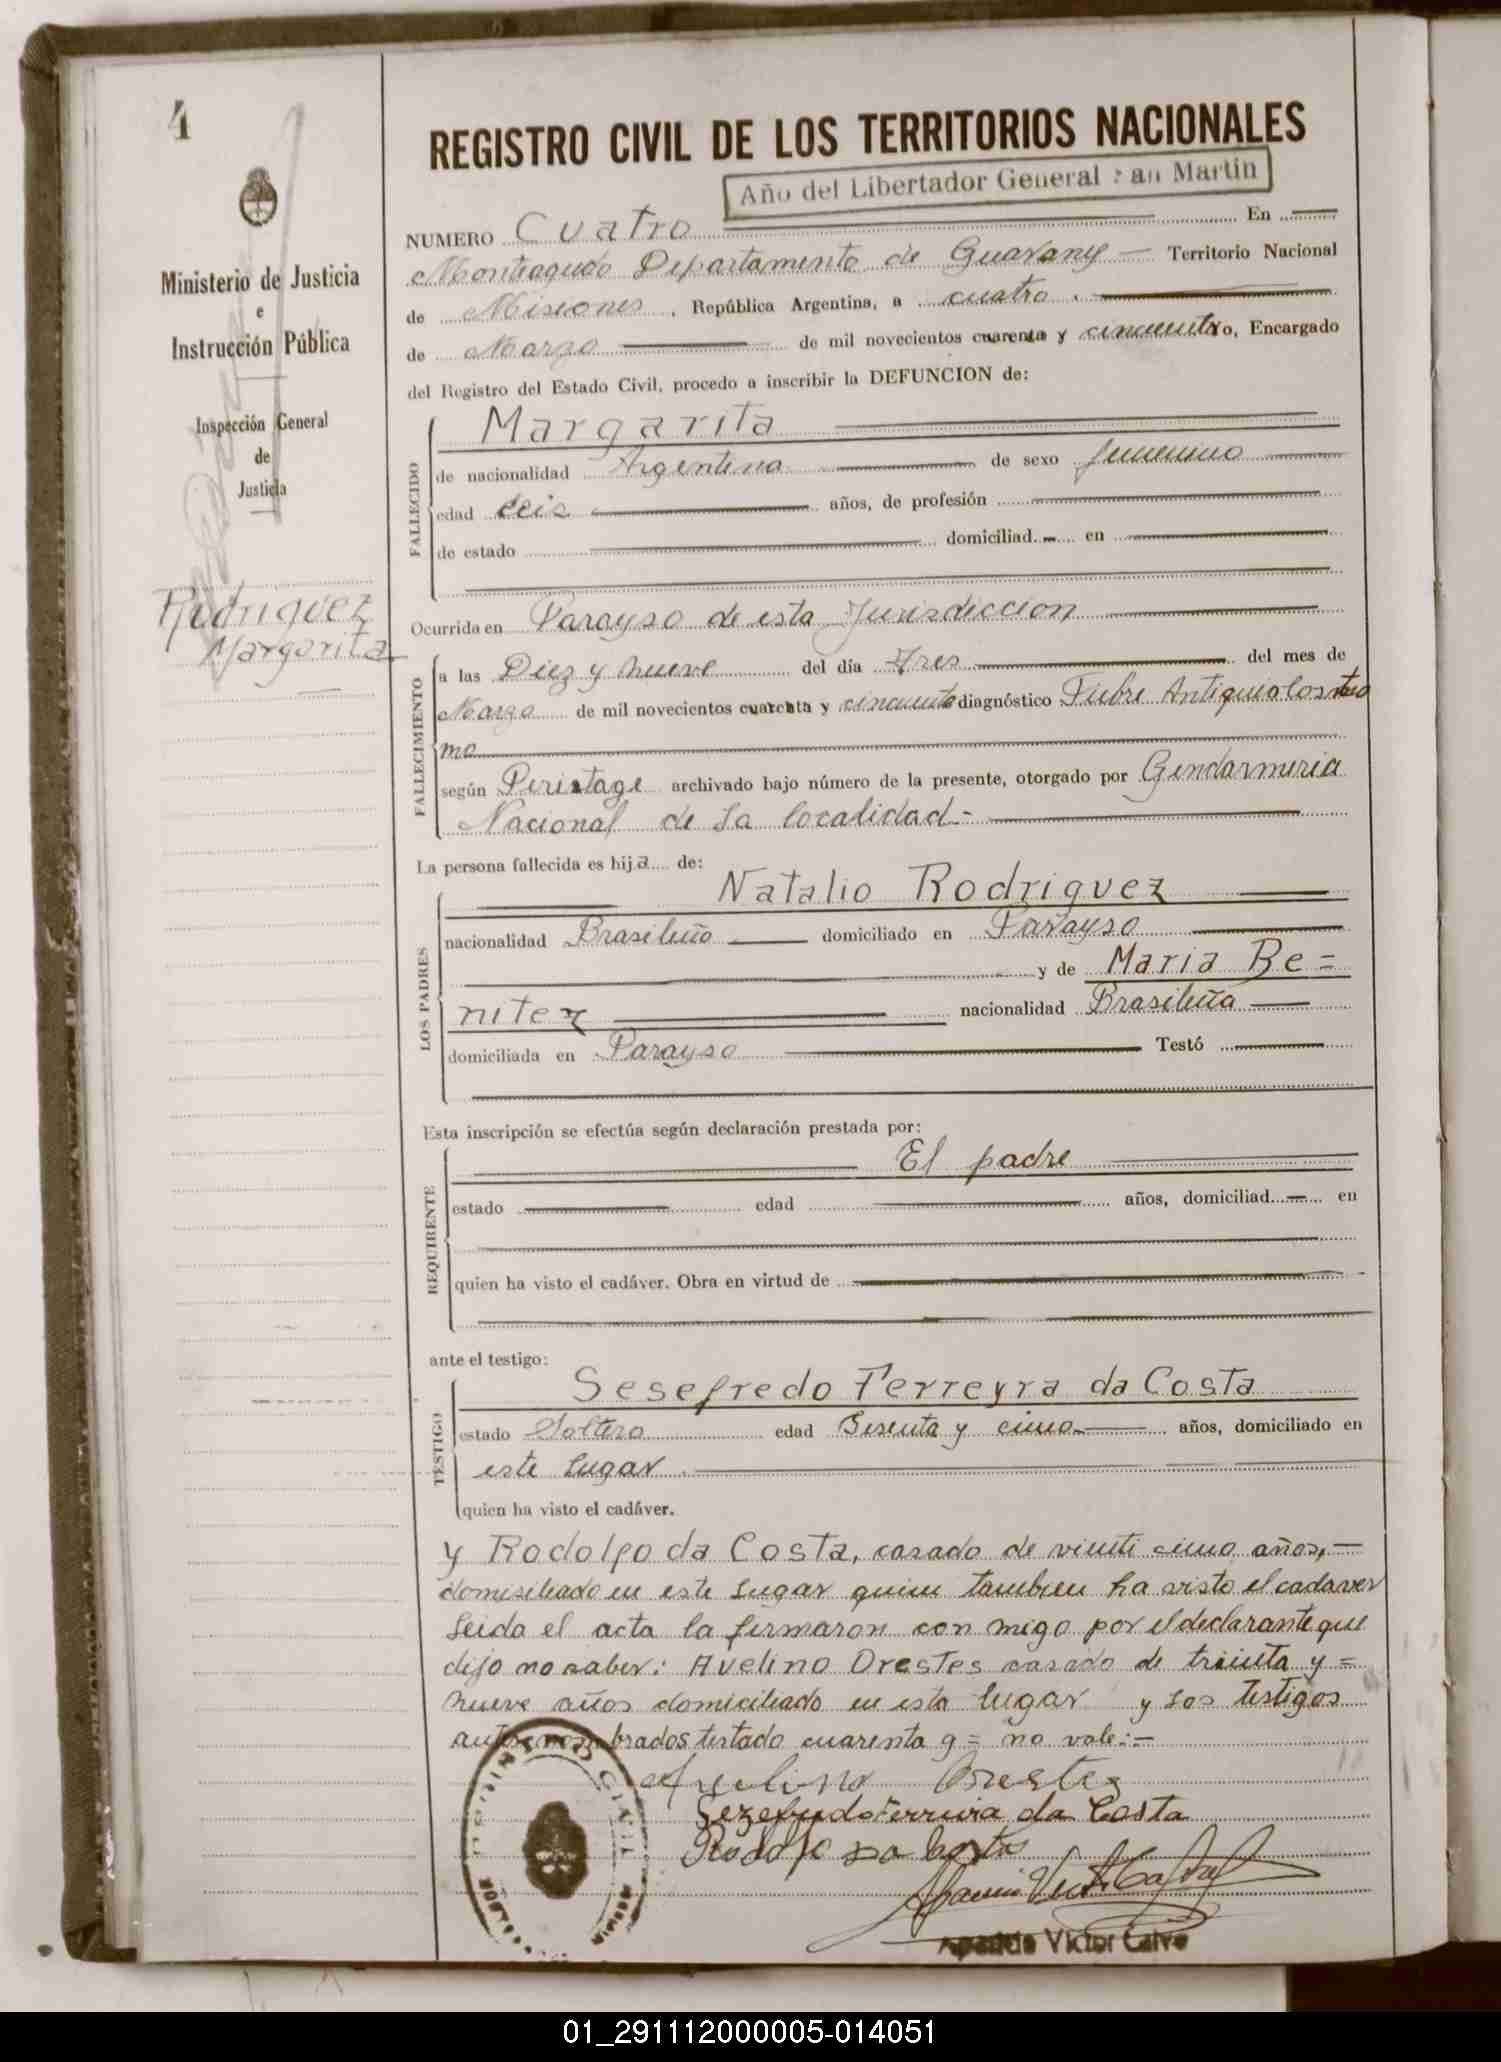 4
Ministerio de Justicia
e
Instrucción Pública
Inspección General
de
Justicia
Rodriguez
Margarita
REGISTRO CIVIL DE LOS TERRITORIOS NACIONALES
Año del Libertador General San Martín
NUMERO Cuatro En
Monteagudo Departamento de Guarany Territorio Nacional
de Misiones, República Argentina, a cuatro
de Marzo de mil novecientos cuarenta y cincuenta yo, Encargado
del Registro del Estado Civil, procedo a inscribir la DEFUNCION de:
FALLECIDO
Margarita
de nacionalidad Argentina de sexo femenino
edad seis años, de profesión
de estado domiciliad en
Ocurrida en Parayso de esta Jurisdiccion,
FALLECIMIENTO
a las Diez y nueve del día Tres del mes de
Marzo de mil novecientos cuarenta y cincuenta diagnóstico Fiebre
mo
según Peritage archivado bajo número de la presente, otorgado por Gendarmeria
Nacional de la localidad.-
La persona fallecida es hija de:
LOS PADRES
Natalio Rodriguez
nacionalidad Brasileño domiciliado en Parayso
y de Maria Be=
nitez nacionalidad Brasileña
domiciliada en Parayso Testó
Esta inscripción se efectúa según declaración prestada por:
REQUIRENTE
El padre
estado edad años, domiciliad en
quien ha visto el cadáver. Obra en virtud de
ante el testigo:
TESTIGO
Sesefredo Ferreyra da Costa
estado Soltero edad Sesenta y cinco años, domiciliado en
este lugar
quien ha visto el cadáver.
y Rodolfo da Costa, casado de veinti cinco años,-
domiciliado en este lugar quien tambien ha visto el cadaver
Leida el acta la firmaron con migo por el declarante que
dijo no saber: Avelino Orestes casado de treinta y =
nueve años domiciliado en esta lugar y los testigos
antes nombrados testado cuarenta y = no vale:-
Avelino Orestes
Sezefredo Ferreira da Costa
Rodolfo da Costa
REGISTRO CIVIL
MISIONES
Aparicio Victor Calvo
01_291112000005-014051